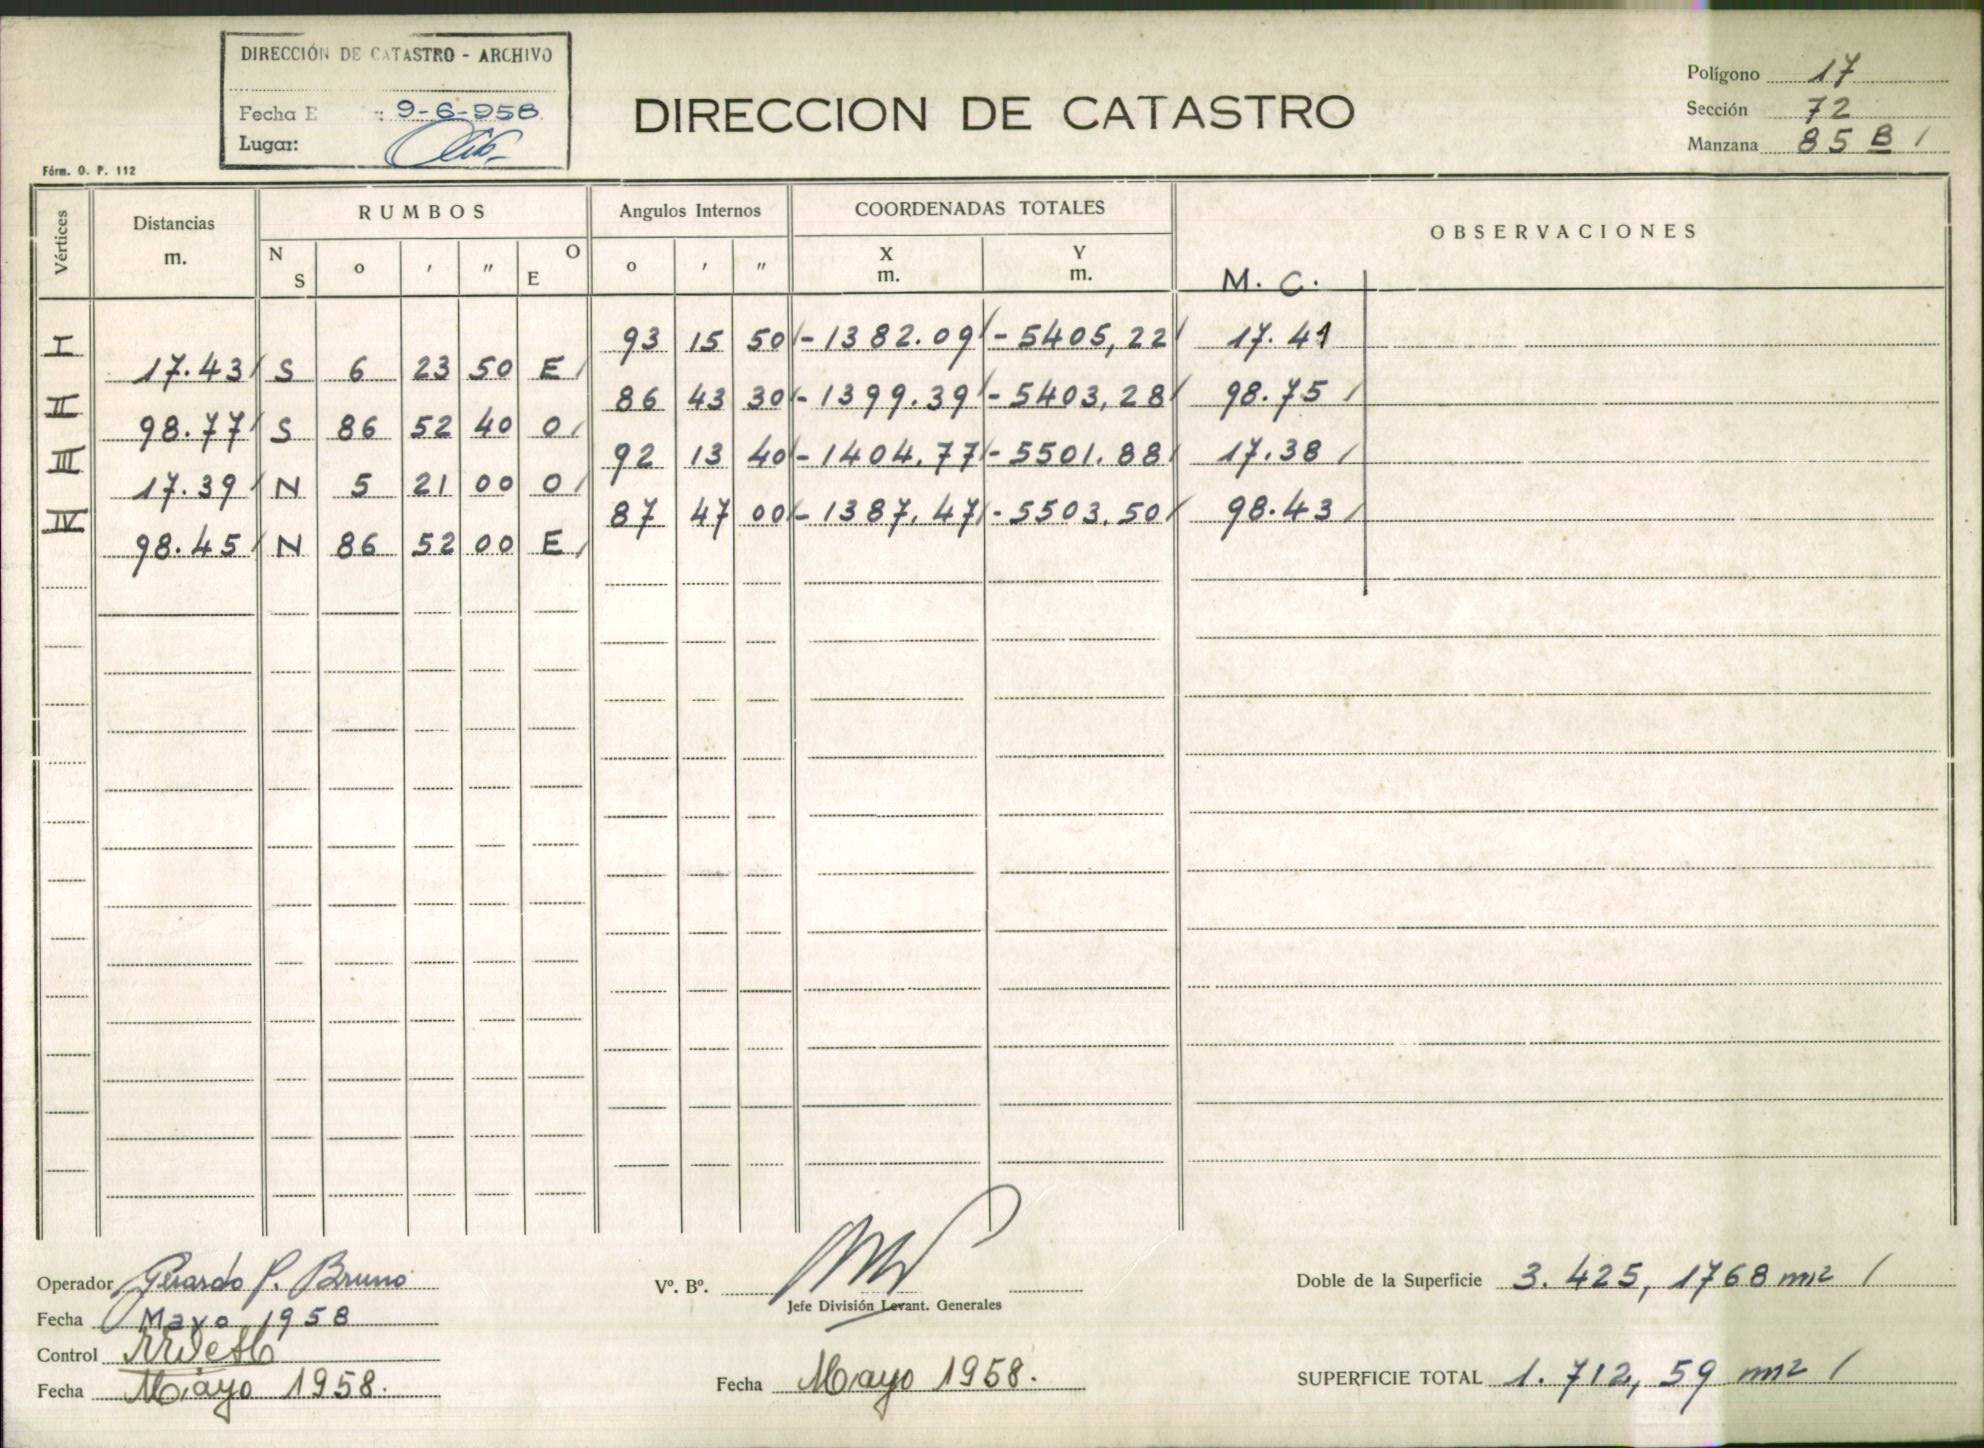 DIRECCIÓN DE CATASTRO - ARCHIVO
Fecha E : 9-6-958
Lugar:
DIRECCION DE CATASTRO
Polígono 17
Sección 72
Manzana 85 B /
Fórm. O. P. 112
Vértices Distancias m. RUMBOS Angulos Internos COORDENADAS TOTALES OBSERVACIONES
N S ° ' " E O ° ' " X m. Y m. M. C.
I 93 15 50 / - 1382.09 / - 5405,22 / 17.41
17.43 / S 6 23 50 E /
II 86 43 30 / - 1399.39 / - 5403,28 / 98.75 /
98.77 / S 86 52 40 O /
III 92 13 40 / - 1404.77 / - 5501.88 / 17.38 /
17.39 / N 5 21 00 O /
IV 87 47 00 / - 1387,47 / - 5503,50 / 98.43 /
98.45 / N 86 52 00 E /
Operador Gerardo P. Bruno
Fecha Mayo 1958
Control
Fecha Mayo 1958.
Vº. Bº.
Jefe División Levant. Generales
Fecha Mayo 1958.
Doble de la Superficie 3.425,1768 m2 /
SUPERFICIE TOTAL 1.712,59 m2 /